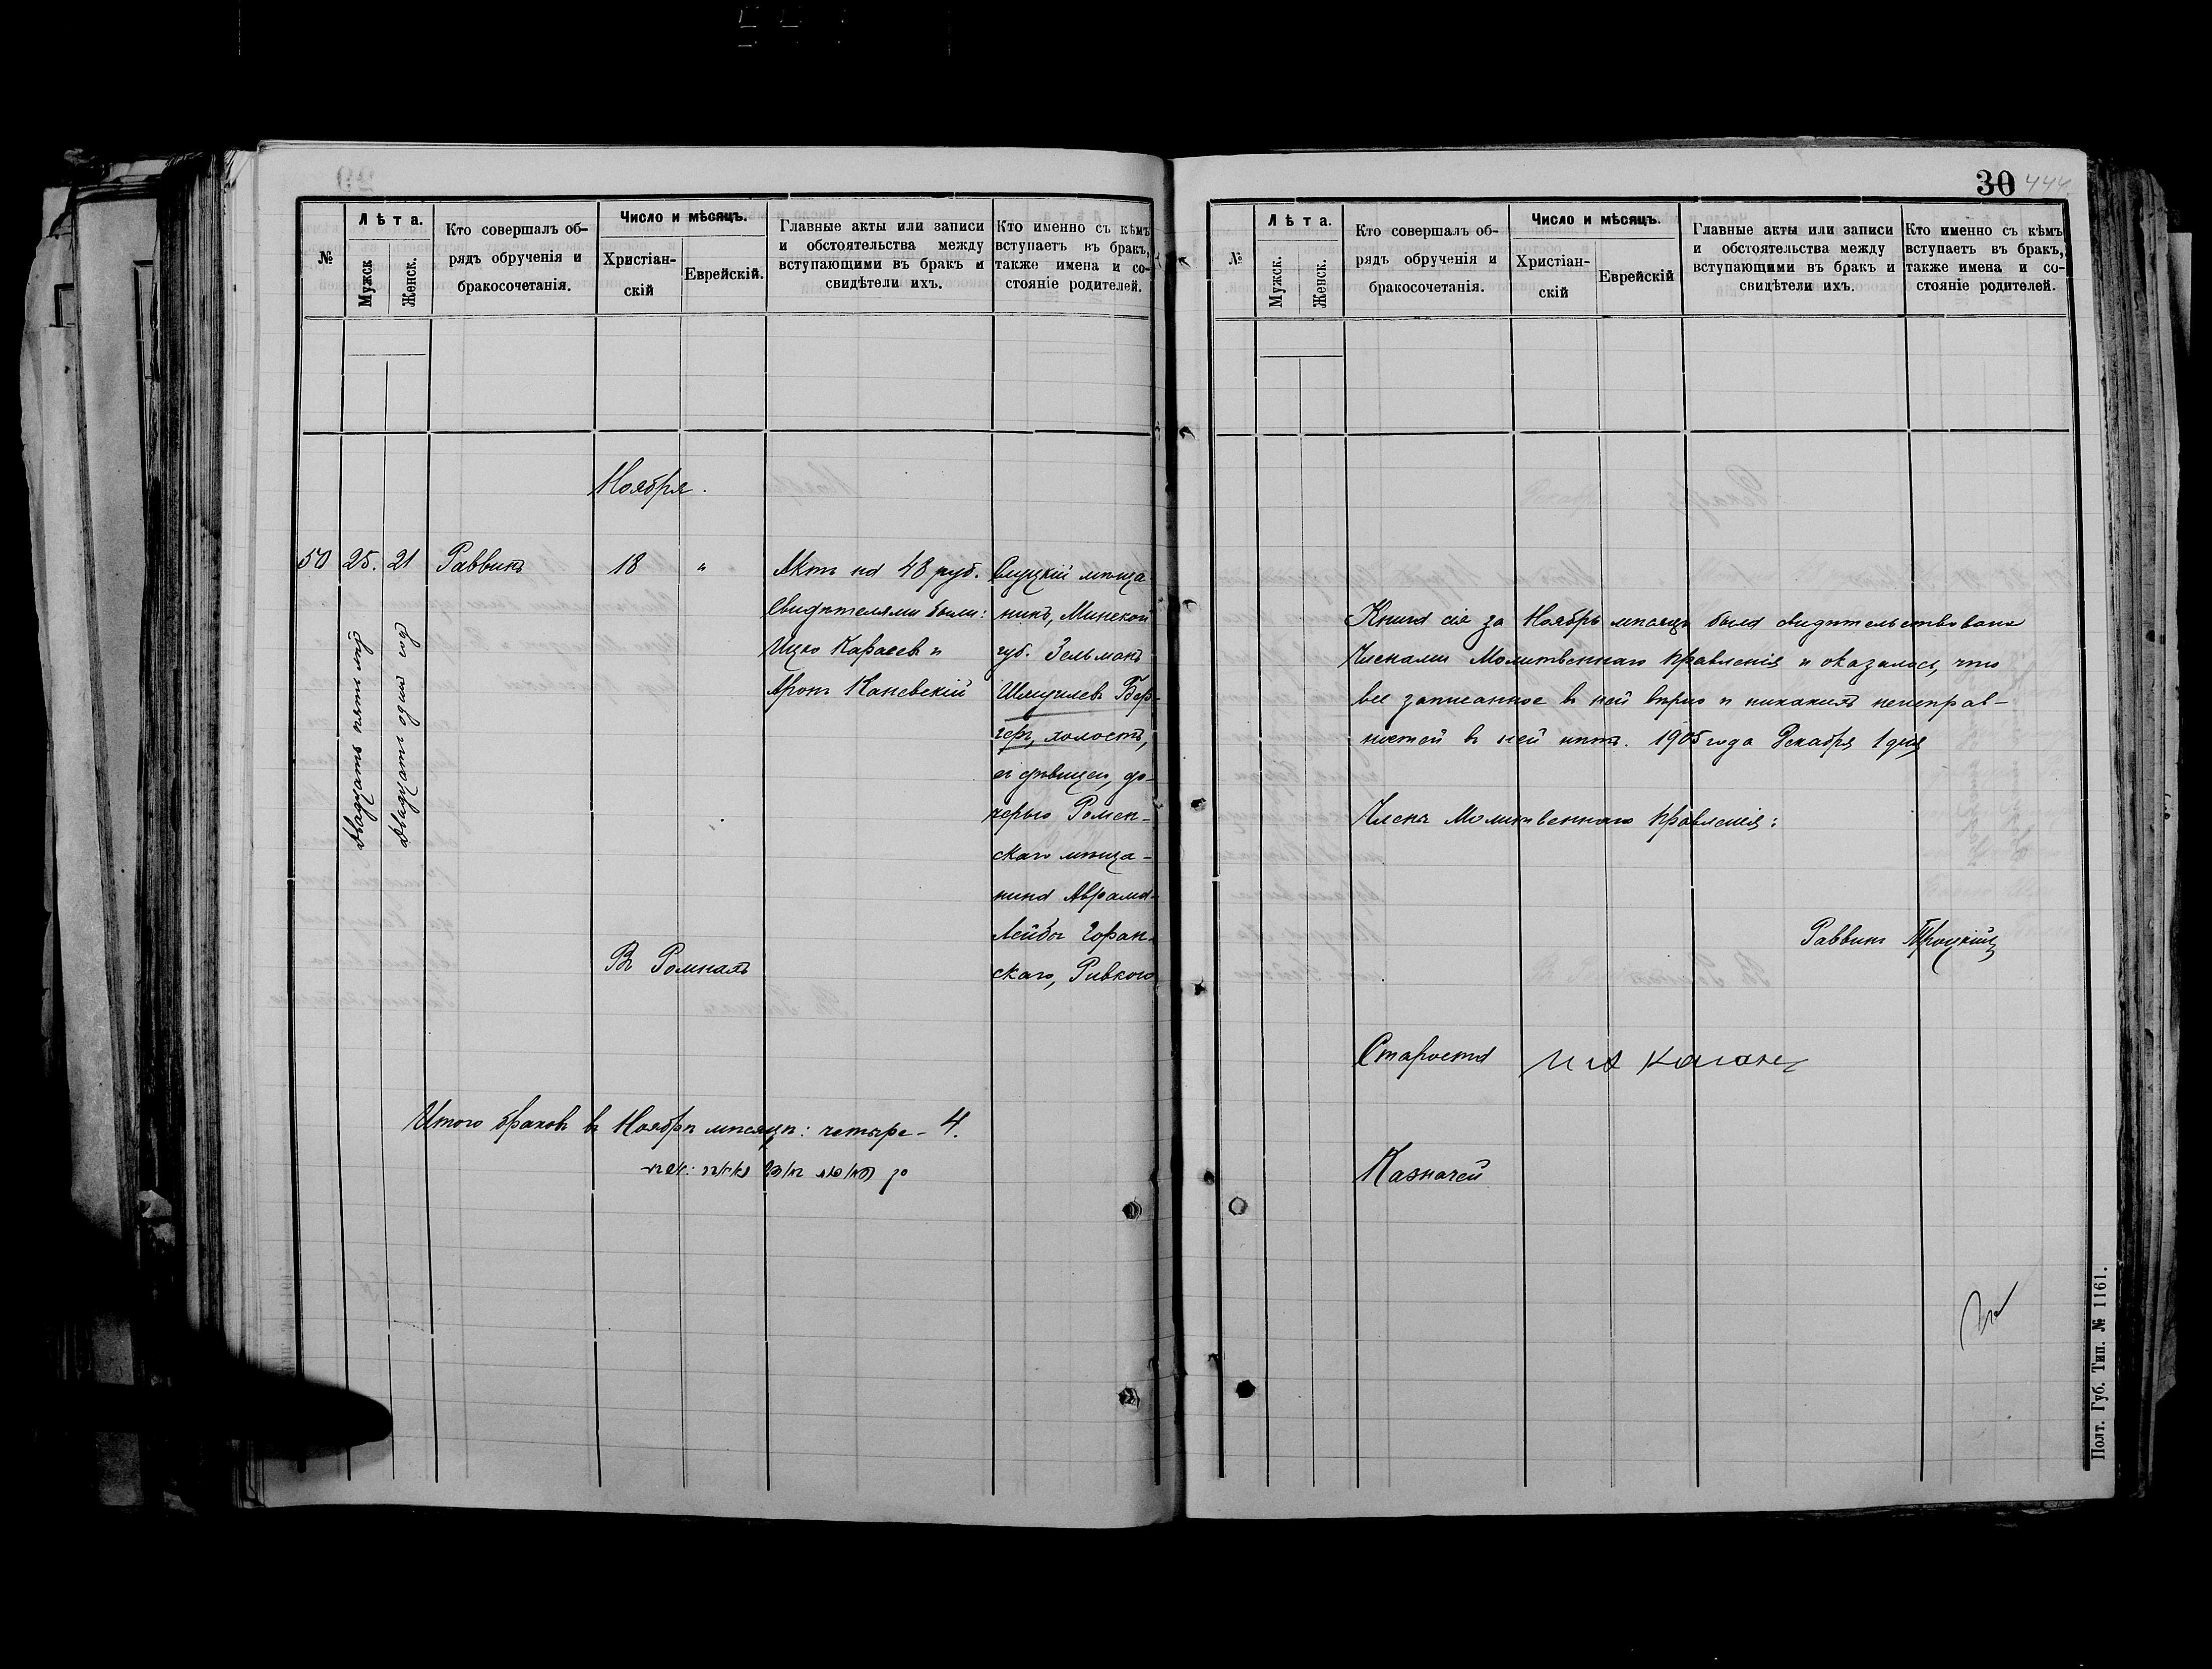 №
Лѣта.
Мужск
Женск.
Кто совершалъ об-
рядъ обрученія и
бракосочетанія.
Число и мѣсяцъ.
Христіан-
скій
Еврейскій.
Главные акты или записи
и обстоятельства между
вступающими въ бракъ и
свидѣтели ихъ.
Кто именно съ кѣмъ
вступаетъ въ бракъ,
также имена и со-
стояніе родителей.
Ноября.
50
25.
Двадцать пять лѣтъ
21
Двадцать одинъ годъ
Раввинъ
18
"
Въ Ромнахъ
Актъ на 48 руб.
Свидѣтелями были:
Ицко Карасев и
Аронъ Каневскій
Слуцкій мѣща
нинъ, Минской
губ. Зельманъ
Шмуилевъ Бер-
геръ, холостъ,
съ дѣвицею, до-
черью Ромен-
скаго мѣща-
нина Абрама-
Лейбы Горан-
скаго, Ривкою
Итого браковъ въ Ноябрѣ мѣсяцѣ: четыре - 4.
30
444
№
Лѣта.
Мужск.
Женск.
Кто совершалъ об-
рядъ обрученія и
бракосочетанія.
Число и мѣсяцъ.
Христіан-
скій
Еврейскій
Главные акты или записи
и обстоятельства между
вступающими въ бракъ и
свидѣтели ихъ.
Кто именно съ кѣмъ
вступаетъ въ бракъ,
также имена и со-
стояніе родителей.
Книга сія за Ноябрь мѣсяцъ была свидѣтельствована
Членами Молитвеннаго Правленія и оказалось, что
все записанное въ ней вѣрно и никакихъ неисправ-
ностей въ ней нѣтъ. 1905 года Декабря 1 дня
Члены Молитвеннаго Правленія:
Раввинъ Троцкій
Староста
Каганъ
Казначей
Полт. Губ. Тип. № 1161.